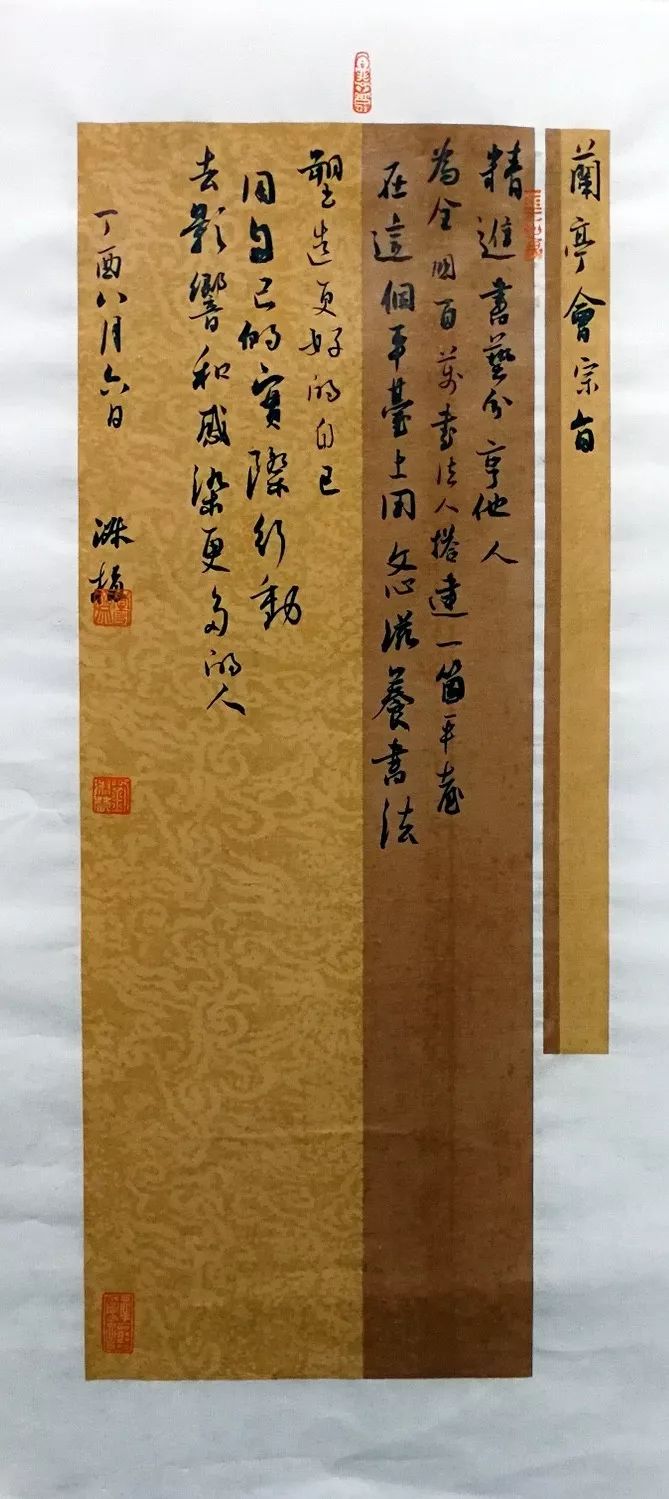 蘭亭會宗旨
精進書藝分享他人
為全國百萬書法人搭建一個平臺
在這個平臺上用文心滋養書法
塑造更好的自己
用自己的實際行動
去影響和感染更多的人
丁酉八月六日